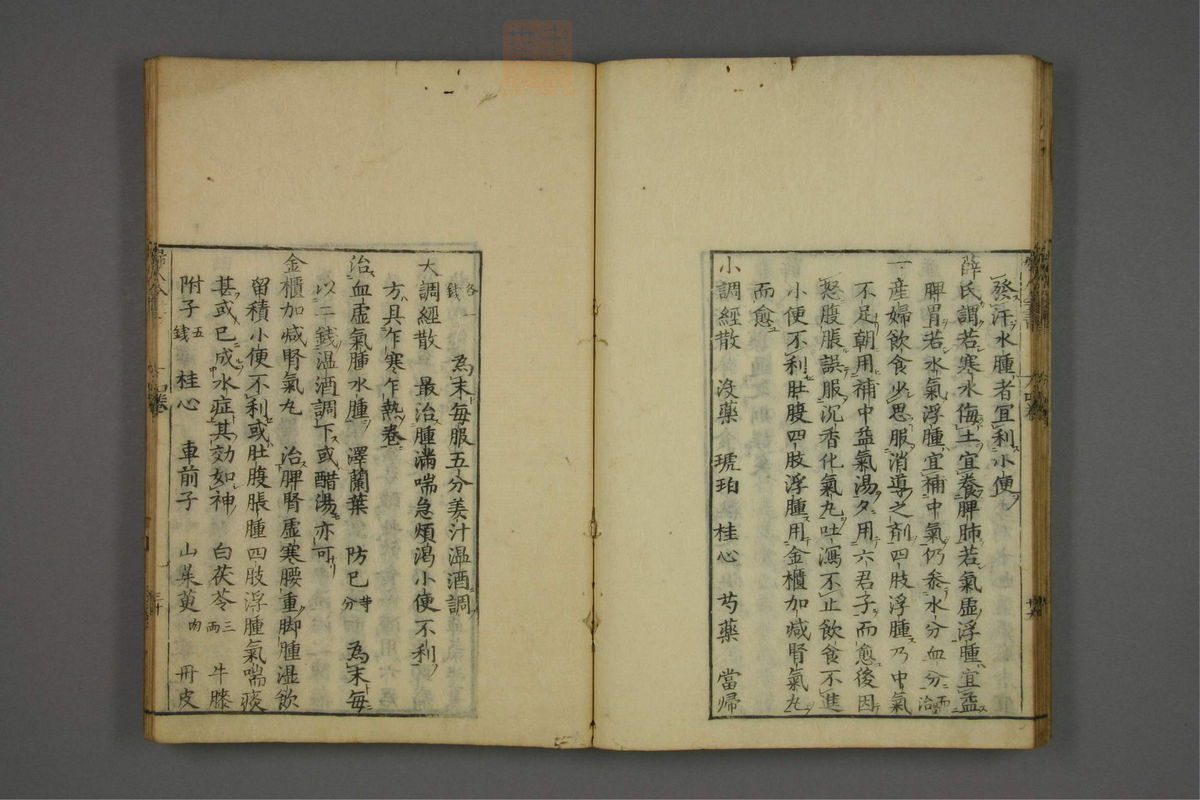 發汗水腫者宜利小便
薛氏謂若寒水侮土宜養脾肺若氣虛浮腫宜益
脾胃若水氣浮腫宜補中氣仍叅水分血分而治
一産婦飲食少思服消導之剤四肢浮腫乃中氣
不足朝用補中益氣湯夕用六君子而愈後因
怒腹脹誤服沉香化氣丸吐瀉不止飲食不進
小便不利肚腹四肢浮腫用金櫃加减腎氣丸
而愈
小調經散 没藥 琥珀 桂心 芍藥 當歸
各一錢 為末每服五分姜汁温酒調
大調經散 最治腫滿喘急煩渴小便不利
方具乍寒乍熱卷
治血虛氣腫水腫 澤蘭葉 防已等分 為末每
以二錢温酒調下或醋湯亦可
金櫃加减腎氣丸 治脾腎虛寒腰重脚腫湿飲
留積小便不利或肚腹脹腫四肢浮腫氣喘痰
甚或已成水症其効如神 白茯苓三兩 牛膝
附子五錢 桂心 車前子 山茱萸肉 丹皮